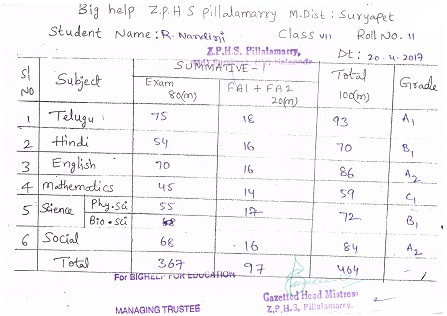 Big help Z.P.H.S Pillalamarry M.Dist: Suryapet
Student Name: R. Nandini Class VII Roll No. 11
Z.P.H.S. Pillalamarry,
Dt: 20-4-2017
Sl NO Subject SUMMATIVE-I Total 100(m) Grade
Exam 80(m) FA1 + FA2 20(m)
1 Telugu 75 18 93 A1
2 Hindi 54 16 70 B1
3 English 70 16 86 A2
4 mathematics 45 14 59 C1
5 Science Phy.sci 55 17 72 B1
Bio.sci
6 Social 68 16 84 A2
Total 367 97 464 -
For BIGHELP FOR EDUCATION
Gazetted Head Mistress
MANAGING TRUSTEE Z.P.H.S, Pillalamarry.